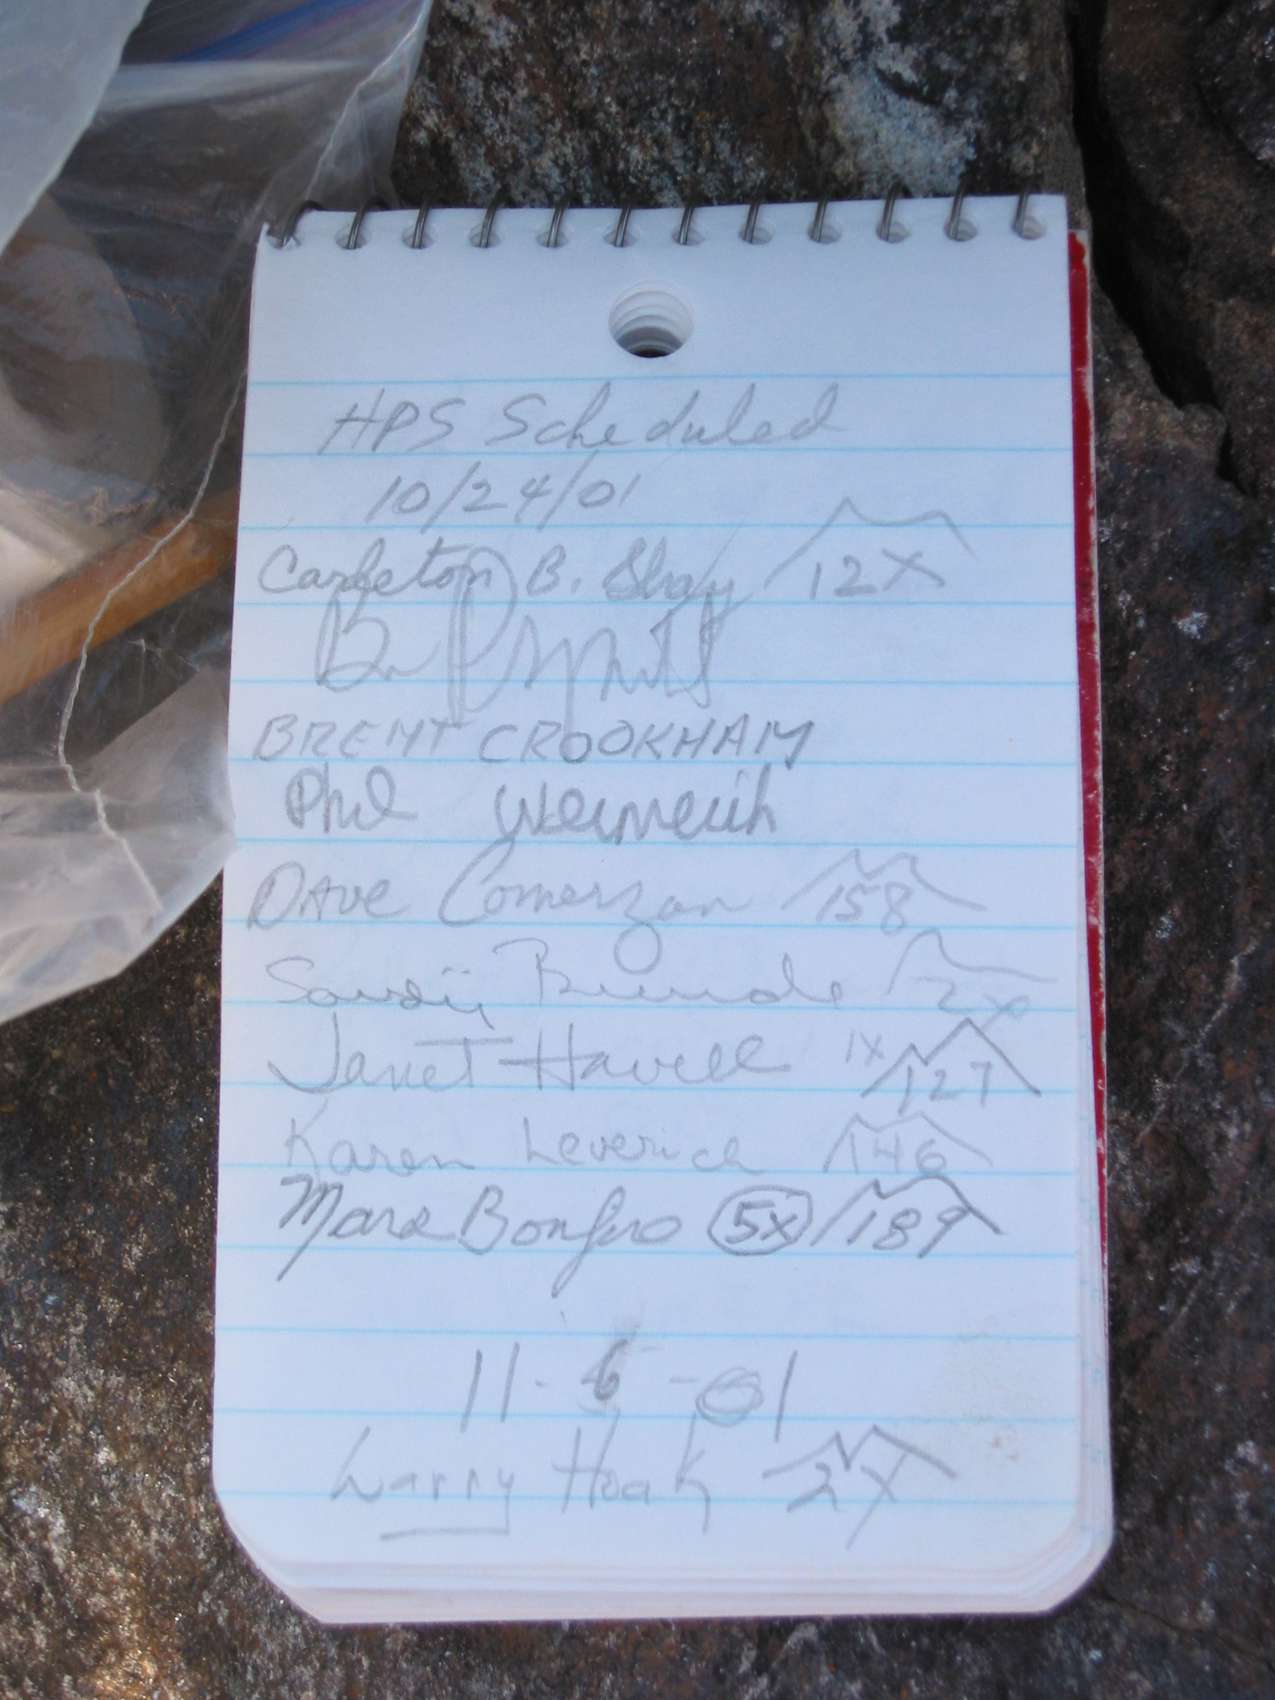 HPS Scheduled
10/24/01
Carleton B. Shay 12X
BRENT CROOKHAM
Phil
Dave Comerzan 158
2x
Janet Howell 1x 127
Karen Leverich 146
Bonfro 5x 189
11- -01
Larry Hoak 2X